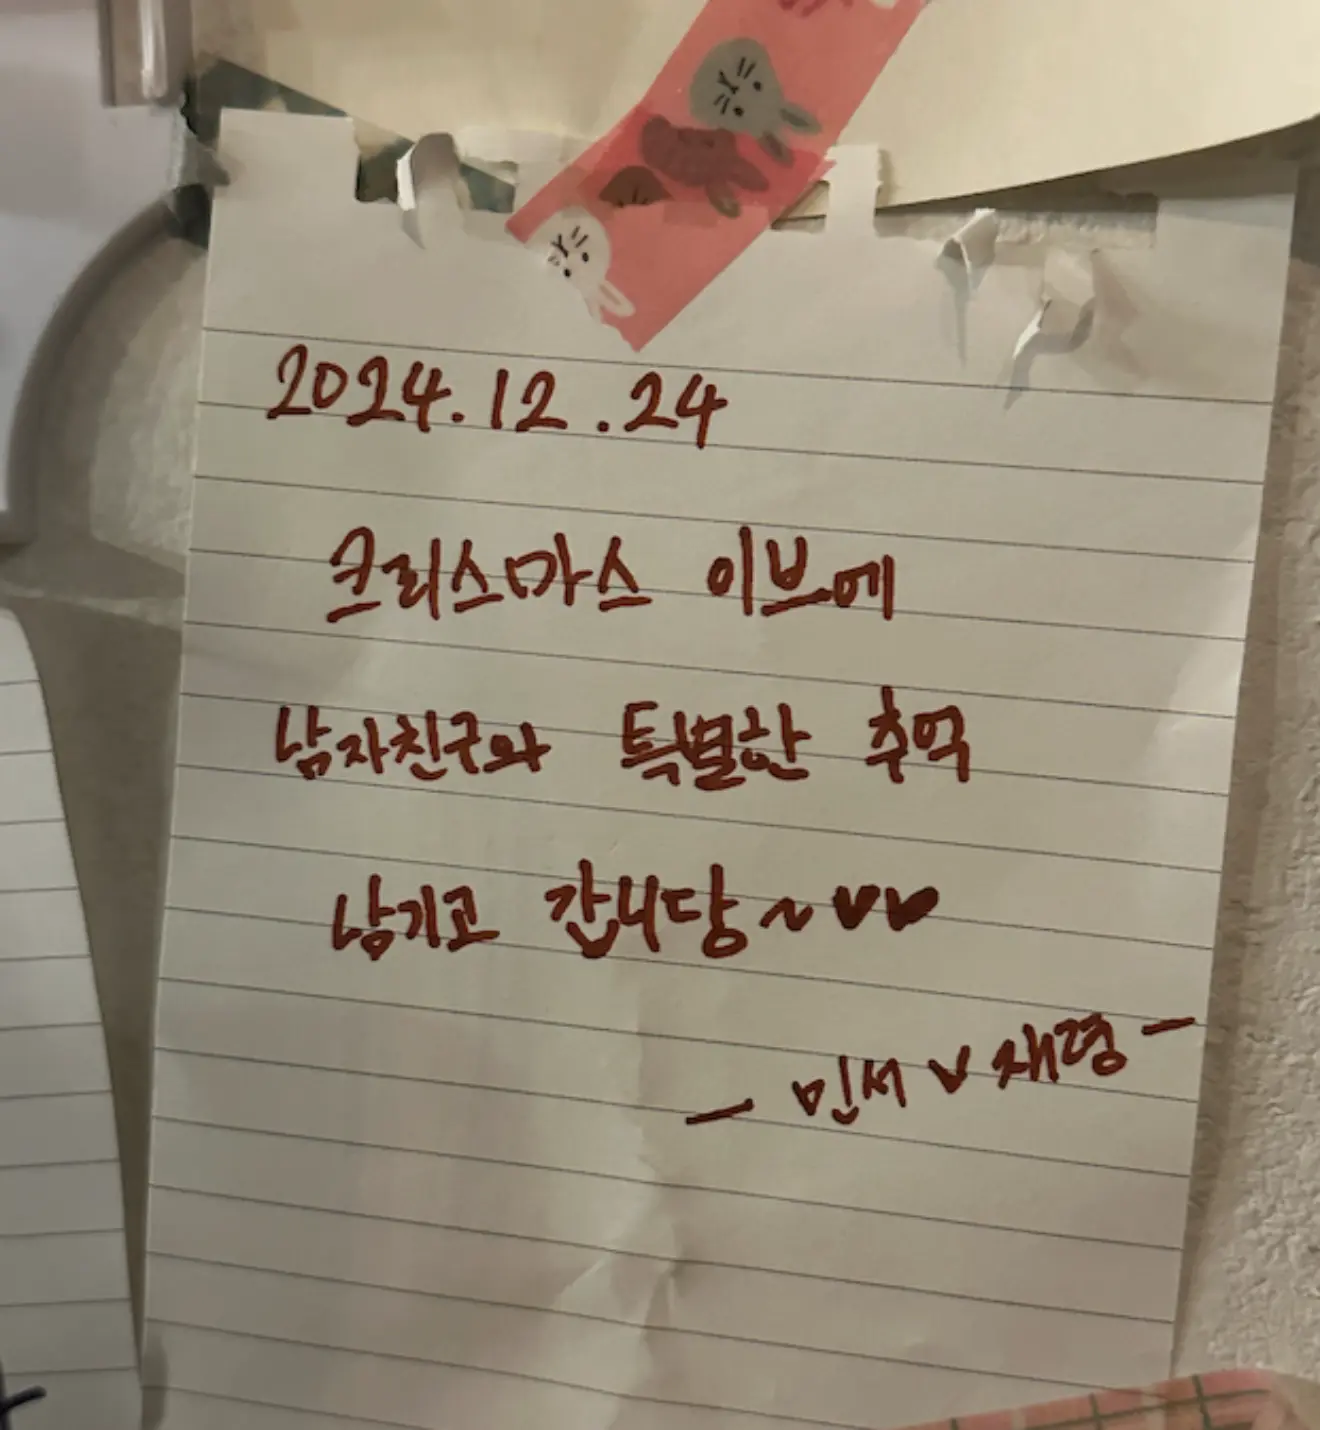 2024.12.24
크리스마스 이브에
남자친구와 특별한 추억
남기고 갑니당~♥♥
- 민서 ♥ 재령 -